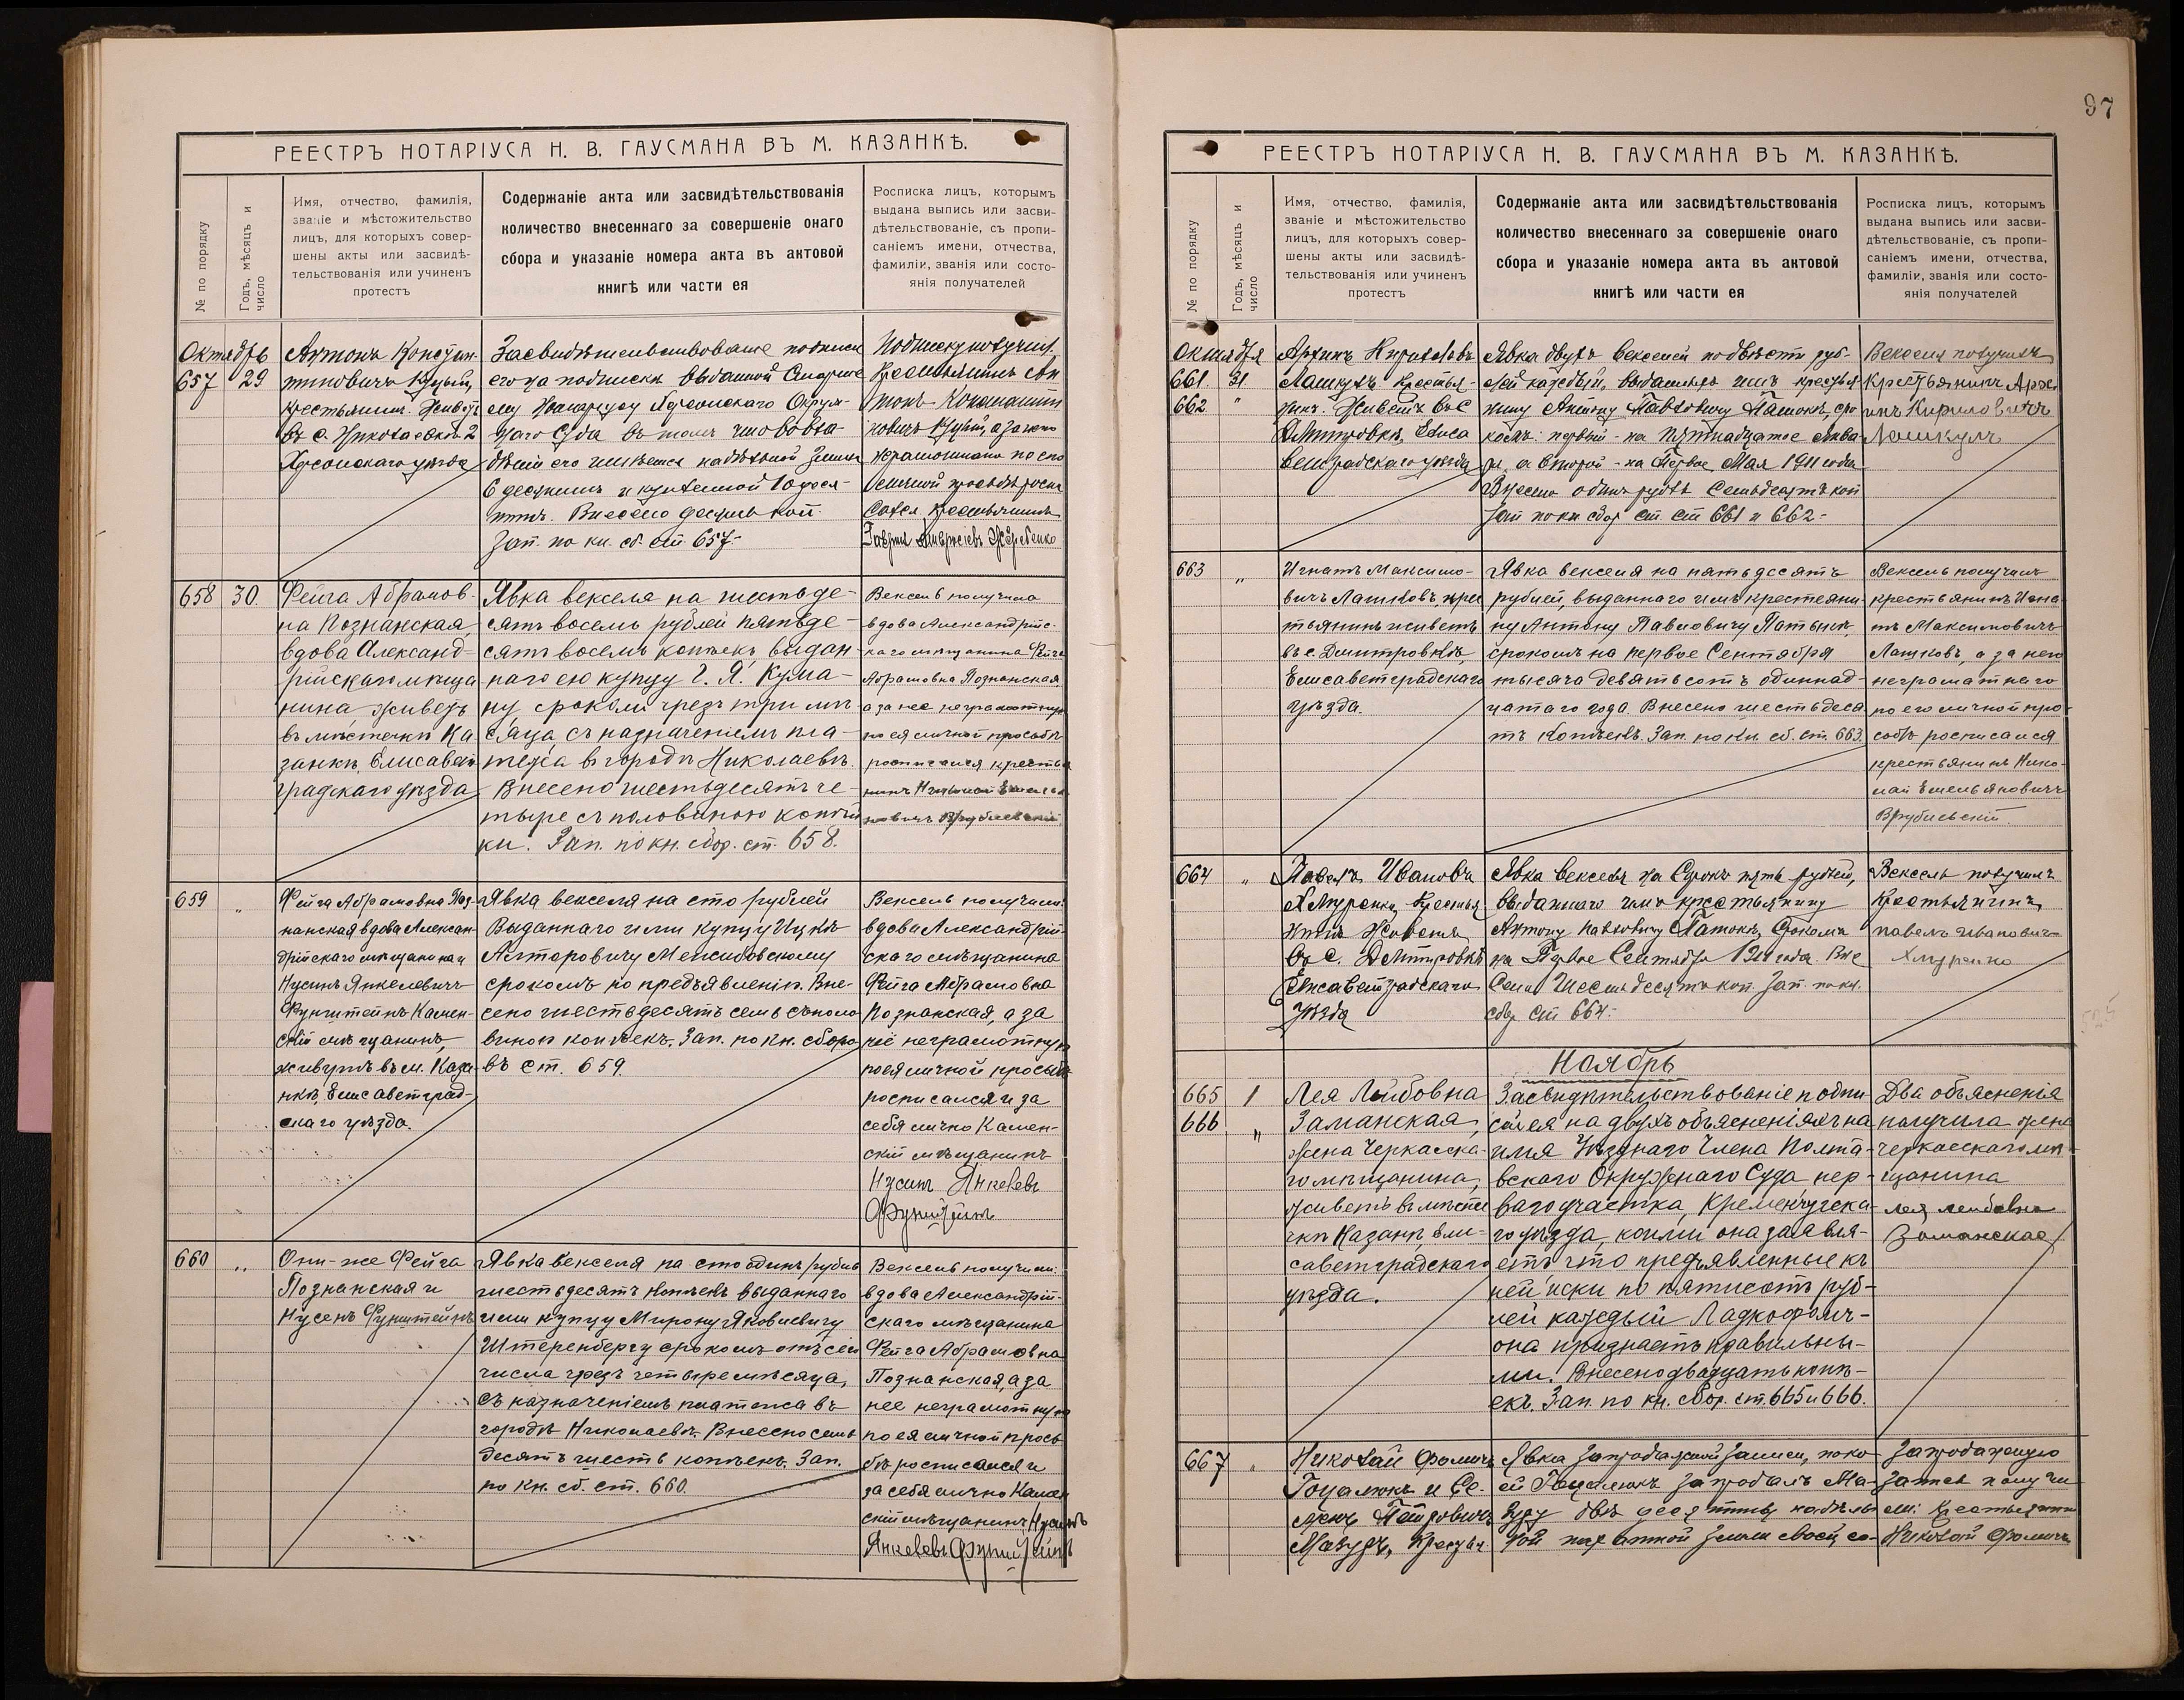 РЕЕСТРЪ НОТАРІУСА Н. В. ГАУСМАНА ВЪ М. КАЗАНКѢ.
№ по порядку
Годъ, мѣсяцъ и
число
Имя, отчество, фамилія,
званіе и мѣстожительство
лицъ, для которыхъ совер-
шены акты или засвидѣ-
тельствованія или учиненъ
протестъ
Содержаніе акта или засвидѣтельствованія
количество внесеннаго за совершеніе онаго
сбора и указаніе номера акта въ актовой
книгѣ или части ея
Росписка лицъ, которымъ
выдана выпись или засви-
дѣтельствованіе, съ пропи-
саніемъ имени, отчества,
фамиліи, званія или состо-
янія получателей
Октябрь
657 29
Антонъ Констан-
тиновичъ
крестьянинъ. Живетъ
въ с. Николаевкѣ 2
Херсонскаго уѣзда
Засвидѣтельствованіе подписи
его на подписки выданной Старше
му Нотаріусу Херсонскаго Окруж-
наго Суда въ томъ что во вла-
дѣніи его имѣется надѣльной земли
6 десятинъ и купленной 10 деся-
тинъ. Внесено десять коп.
Зап. по кн. сб. ст. 657-
Подписку получилъ
крестьянинъ Ан
тонъ Константи
новичъ а за него
неграмотнаго по его
личной просьбѣ роспи
сался крестьянинъ
658 30.
Фейга Абрамов-
на Познанская,
вдова Александ-
рійскаго мѣща
нина живетъ
въ мѣстечкѣ Ка
занкѣ, Елисавет
градскаго уѣзда
Явка векселя на шестьде-
сятъ восемь рублей пятьде-
сятъ восемь копѣекъ, выдан-
наго ею купцу Г. Я. Кума-
ну срокомъ чрезъ три мѣ-
сяца съ назначеніемъ пла-
тежа въ городѣ Николаевѣ.
Внесено шестьдесятъ че-
тыре съ половиною копѣй
ки. Зап. по кн. сбор. ст. 658.
Вексель получила
вдова Александрійс-
каго мѣщанина Фейга
Абрамовна Познанская,
а за нее неграмотную
по ея личной просьбѣ
росписался крестья
нинъ Николай Емелья
новичъ Врублевскій.
659 "
Фейга Абрамовна Поз-
нанская вдова Алексан-
дрійскаго мѣщанина и
Нусинъ Янкелевичъ
Фунштейнъ Камен-
скій мѣщанинъ,
живутъ въ м. Каза
нкѣ, Елисаветград-
скаго уѣзда.
Явка векселя на сто рублей
Выданнаго ими купцу Ицкѣ
срокомъ по предъявленіи. Вне-
сено шестьдесятъ семь съ поло
виной копѣекъ. Зап. по кн. сборо
въ ст. 659.
Вексель получили:
вдова Александрій-
скаго мѣщанина
Фейга Абрамовна
Познанская, а за
нее неграмотную
по ея личной просьбѣ
росписался и за
себя лично Камен-
скій мѣщанинъ
Нусинъ Янкелевъ
Фунштейнъ
660 "
Они-же Фейга
Познанская и
Нусенъ Фунштейнъ
Явка векселя на сто одинъ рубль
шестьдесятъ копѣекъ выданнаго
ими купцу Мирону Яковлевичу
Штеренбергу срокомъ отъ сего
числа чрезъ четыре мѣсяца,
съ назначеніемъ платежа въ
городѣ Николаевѣ. Внесено семь
десятъ шесть копѣекъ. Зап.
по кн. сб. ст. 660.
Вексель получили:
вдова Александрій-
скаго мѣщанина
Фейга Абрамовна
Познанская, а за
нее неграмотную
по ея личной прось
бѣ росписался и
за себя лично Камен
скій мѣщанинъ Нусинъ
Янкелевъ Фунштейнъ
97
РЕЕСТРЪ НОТАРІУСА Н. В. ГАУСМАНА ВЪ М. КАЗАНКѢ.
№ по порядку
Годъ, мѣсяцъ и
число
Имя, отчество, фамилія,
званіе и мѣстожительство
лицъ, для которыхъ совер-
шены акты или засвидѣ-
тельствованія или учиненъ
протестъ
Содержаніе акта или засвидѣтельствованія
количество внесеннаго за совершеніе онаго
сбора и указаніе номера акта въ актовой
книгѣ или части ея
Росписка лицъ, которымъ
выдана выпись или засви-
дѣтельствованіе, съ пропи-
саніемъ имени, отчества,
фамиліи, званія или состо-
янія получателей
Октября
661. 31.
662 "
Архипъ Кириловъ
Лашкулъ крестья-
нинъ. Живетъ въ с
Дмитровкѣ, Елиса
ветградскаго уѣзда
Явка двухъ векселей по двѣсти руб-
лей каждый, выданныхъ имъ крестья
нину Антону Павловичу Патыкъ, сро
комъ: первый - на пятнадцатое Янва
ря, а второй - на Первое Мая 1911 года
Внесено одинъ рубль Семьдесятъ коп
Зап по кн сбор ст. ст 661 и 662-
Векселя получилъ
Крестьянинъ Архи
ипъ Кириловичъ
Лашкулъ
663 "
Игнатъ Максимо-
вичъ Лашковъ, крес
тьянинъ живетъ
въ с. Дмитровкѣ,
Елисаветградскаго
уѣзда.
Явка векселя на пятьдесятъ
рублей, выданнаго имъ крестьяни
ну Антону Павловичу Патыкъ,
срокомъ на первое Сентября
тысяча девятьсотъ одиннад-
цатаго года. Внесено шестьдеся
тъ копѣекъ. Зап. по кн. сб. ст. 663.
Вексель получилъ
крестьянинъ Игна
тъ Максимовичъ
Лашковъ, а за него
неграмотнаго
по его личной про
сьбѣ росписался
крестьянинъ Нико-
лай Емельяновичъ
Врублевскій.
664 "
Павелъ Ивановъ
Хмуренко, крестья
нинъ Живетъ
въ с. Дмитровкѣ
Елисаветградскаго
уѣзда
Явка векселя на Сорокъ пять рублей,
выданнаго имъ крестьянину
Антону Павловичу Патыкъ, Срокомъ
на Первое Сентября 1911 года. Вне
сено Шестьдесятъ коп. Зап. по кн.
сбор ст 664.-
Вексель получилъ
Крестьянинъ
павелъ ивановичъ
Хмуренко
Ноябрь
665 1
666 "
Лея Лейбовна
Заманская,
жена Черкасска-
го мѣщанина,
живетъ въ мѣсте
чкѣ Казанкѣ, Ели-
саветградскаго
уѣзда.
Засвидѣтельствованіе подпи
си ея на двухъ объясненіяхъ на
имя Уѣзднаго Члена Полта-
вскаго Окружнаго Суда пер-
ваго участка, Кременчугска-
го уѣзда, коими она заявля-
етъ что предъявленные къ
ней иски по пятисотъ руб-
лей каждый Ладкофомъ-
она признаетъ правильны-
ми. Внесено двадцать копѣ-
екъ. Зап. по кн. сбор. ст. 665 и 666.
Два объясненія
получила жена
черкасскаго мѣ-
щанина
лея лейбовна
Заманская
667 "
Николай Фомичъ
Гоцалюкъ и Се-
менъ Петровичъ
Мазуръ, Крестья
Явка Запродажной Записи, по ко
ей Гоцалюкъ запродалъ Ма-
зуру двѣ десятины надѣль
ной пахатной земли своей, со-
Запродажную
Запись получи
ли: Крестьянин
Николай Фомичъ